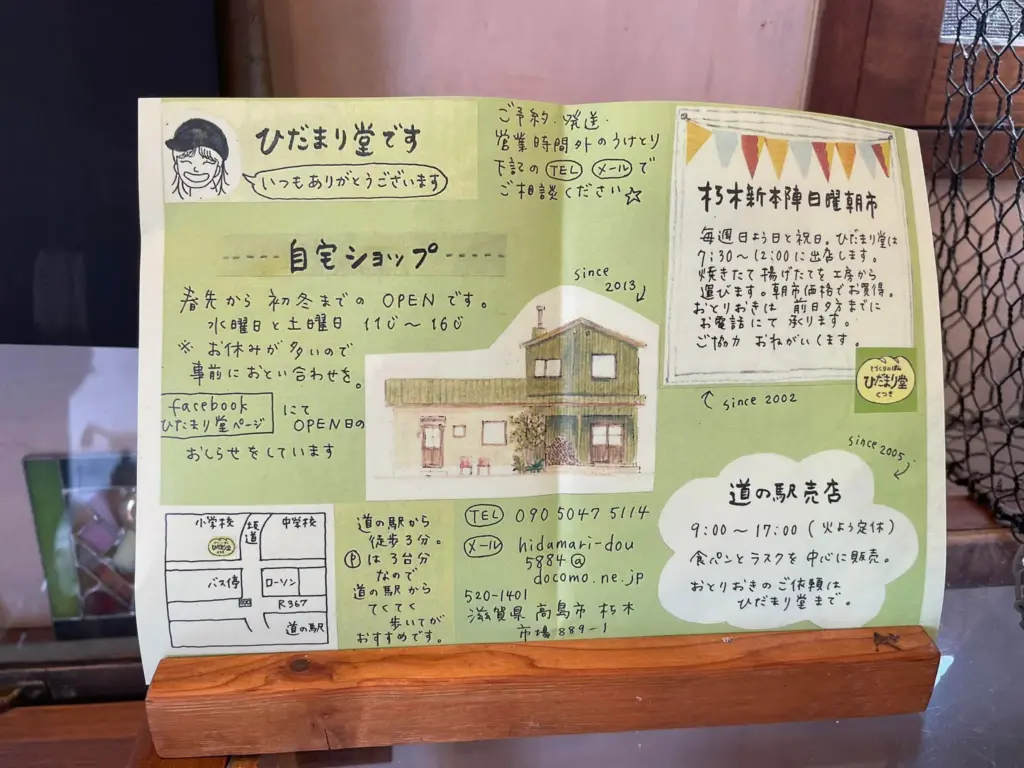 ひだまり堂です
いつもありがとうございます
ご予約・発送・
営業時間外のうけとり
下記の TEL メール で
ご相談ください☆
自宅ショップ
春先から 初冬までの OPENです。
水曜日と土曜日 11じ〜16じ
※ お休みが多いので
事前におとい合わせを。
facebook
ひだまり堂ページ
にて
OPEN日の
おしらせをしています
since
2013
朽木新本陣日曜朝市
毎週日よう日と祝日。ひだまり堂は
7:30〜12:00に出店します。
焼きたて揚げたてを工房から
運びます。朝市価格でお買得。
おとりおきは 前日夕方までに
お電話にて承ります。
ご協力 おねがいします。
since 2002
ひだまり堂
くつき
since 2005
道の駅売店
9:00〜17:00 (火よう定休)
食パンとラスクを中心に販売。
おとりおきのご依頼は
ひだまり堂まで。
小学校
坂道
中学校
ひだまり堂
バス停
ローソン
R367
道の駅
道の駅から
徒歩3分。
Pは3台分
なので
道の駅から
てくてく
歩いてが
おすすめです。
TEL 090 5047 5114
メール hidamari-dou
5884@
docomo.ne.jp
520-1401
滋賀県高島市朽木
市場889-1